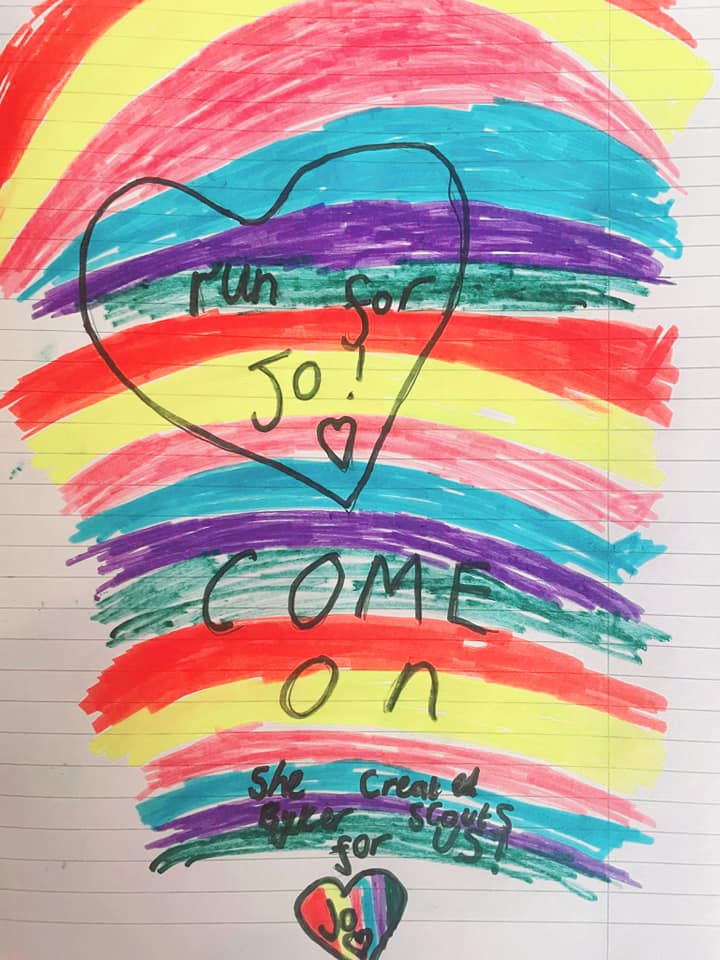 run for
Jo!
COME
on
She Created
Byker Scouts
for US!
Jo